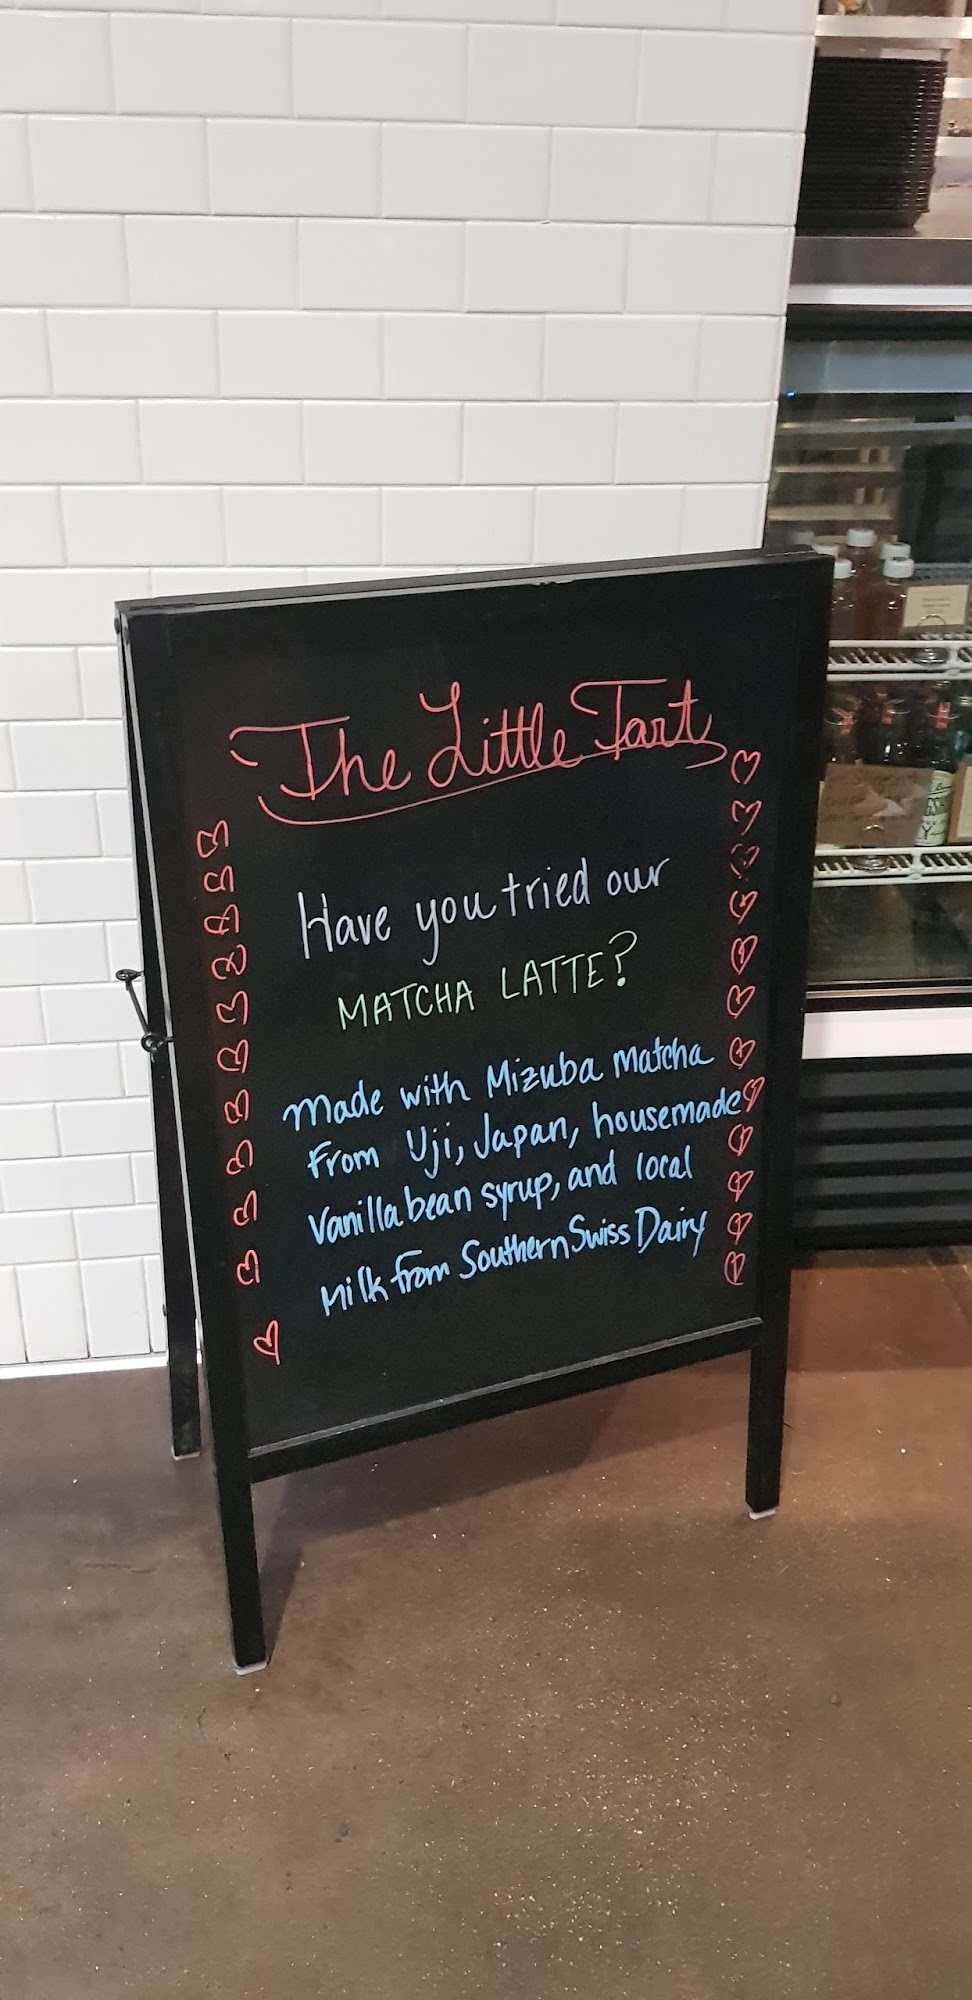 The Little Tart
Have you tried our
MATCHA LATTE?
Made with Mizuba Matcha
From Uji, Japan, housemade
Vanilla bean syrup, and local
Milk from Southern Swiss Dairy